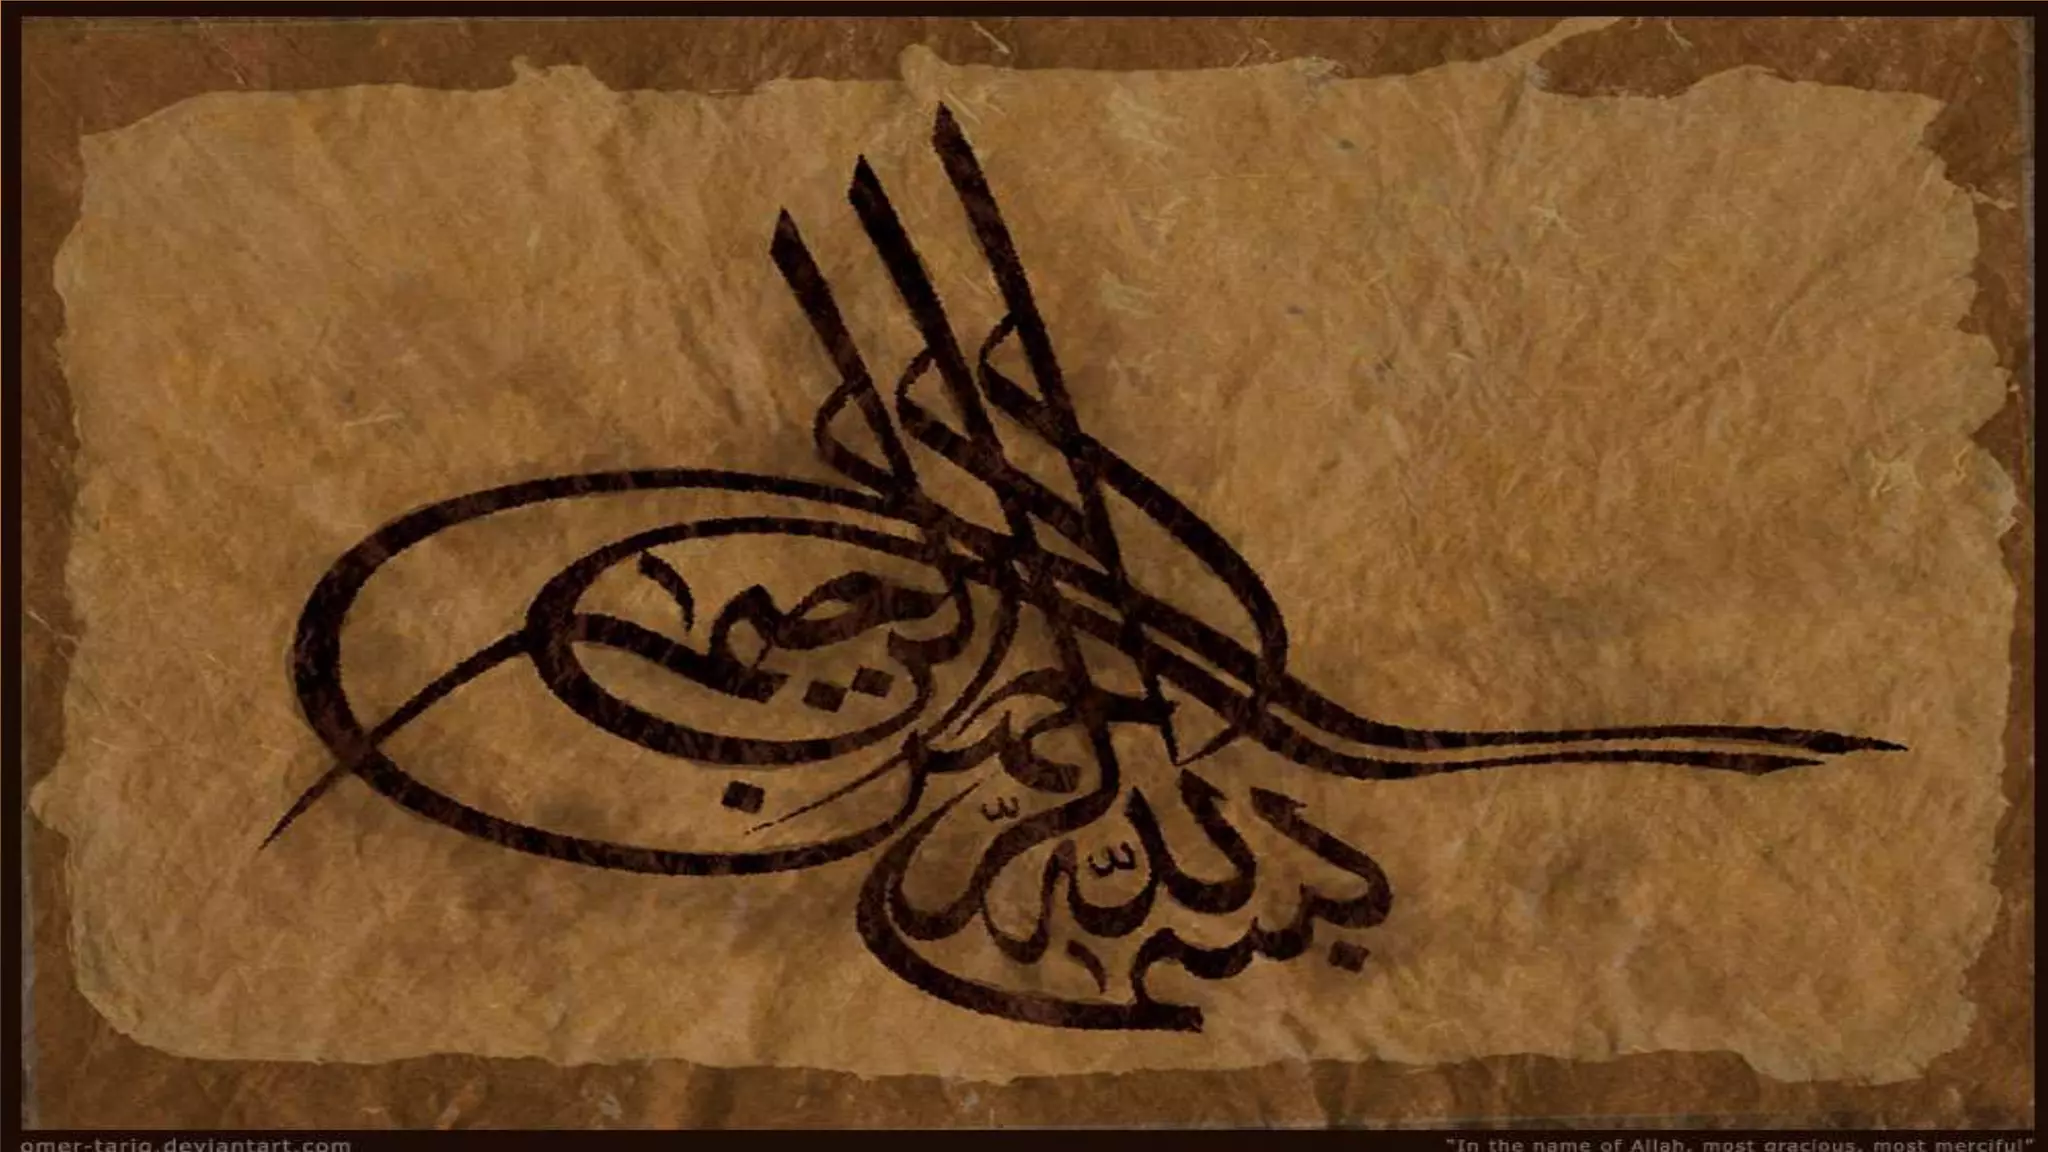 بسم الله الرحمن الرحيم
omer-tariq.deviantart.com
"In the name of Allah, most gracious, most merciful"